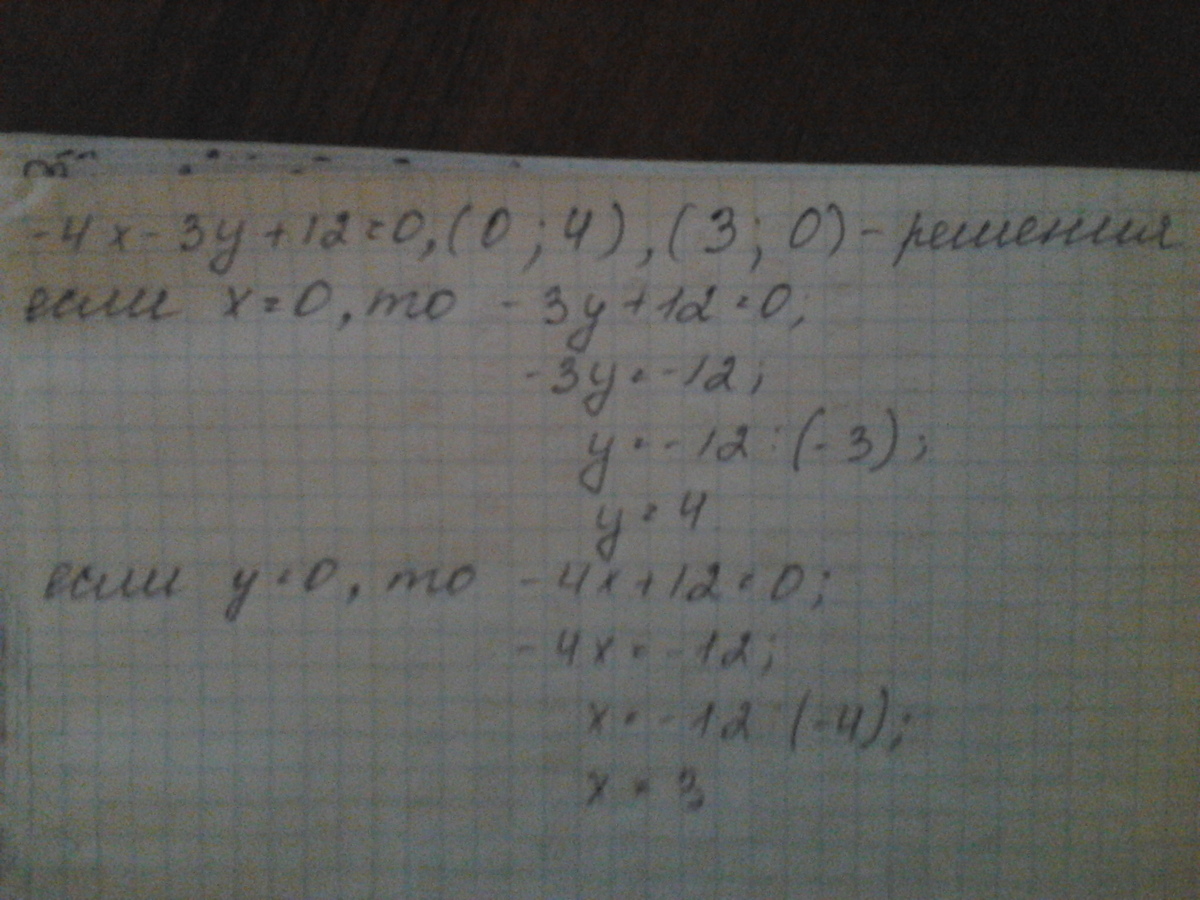 -4x-3y+12=0,(0;4),(3;0)-решения
если x=0,то -3y+12=0;
-3y=-12;
y=-12:(-3);
y=4
если y=0, то -4x+12=0;
-4x=-12;
x=-12:(-4);
x=3